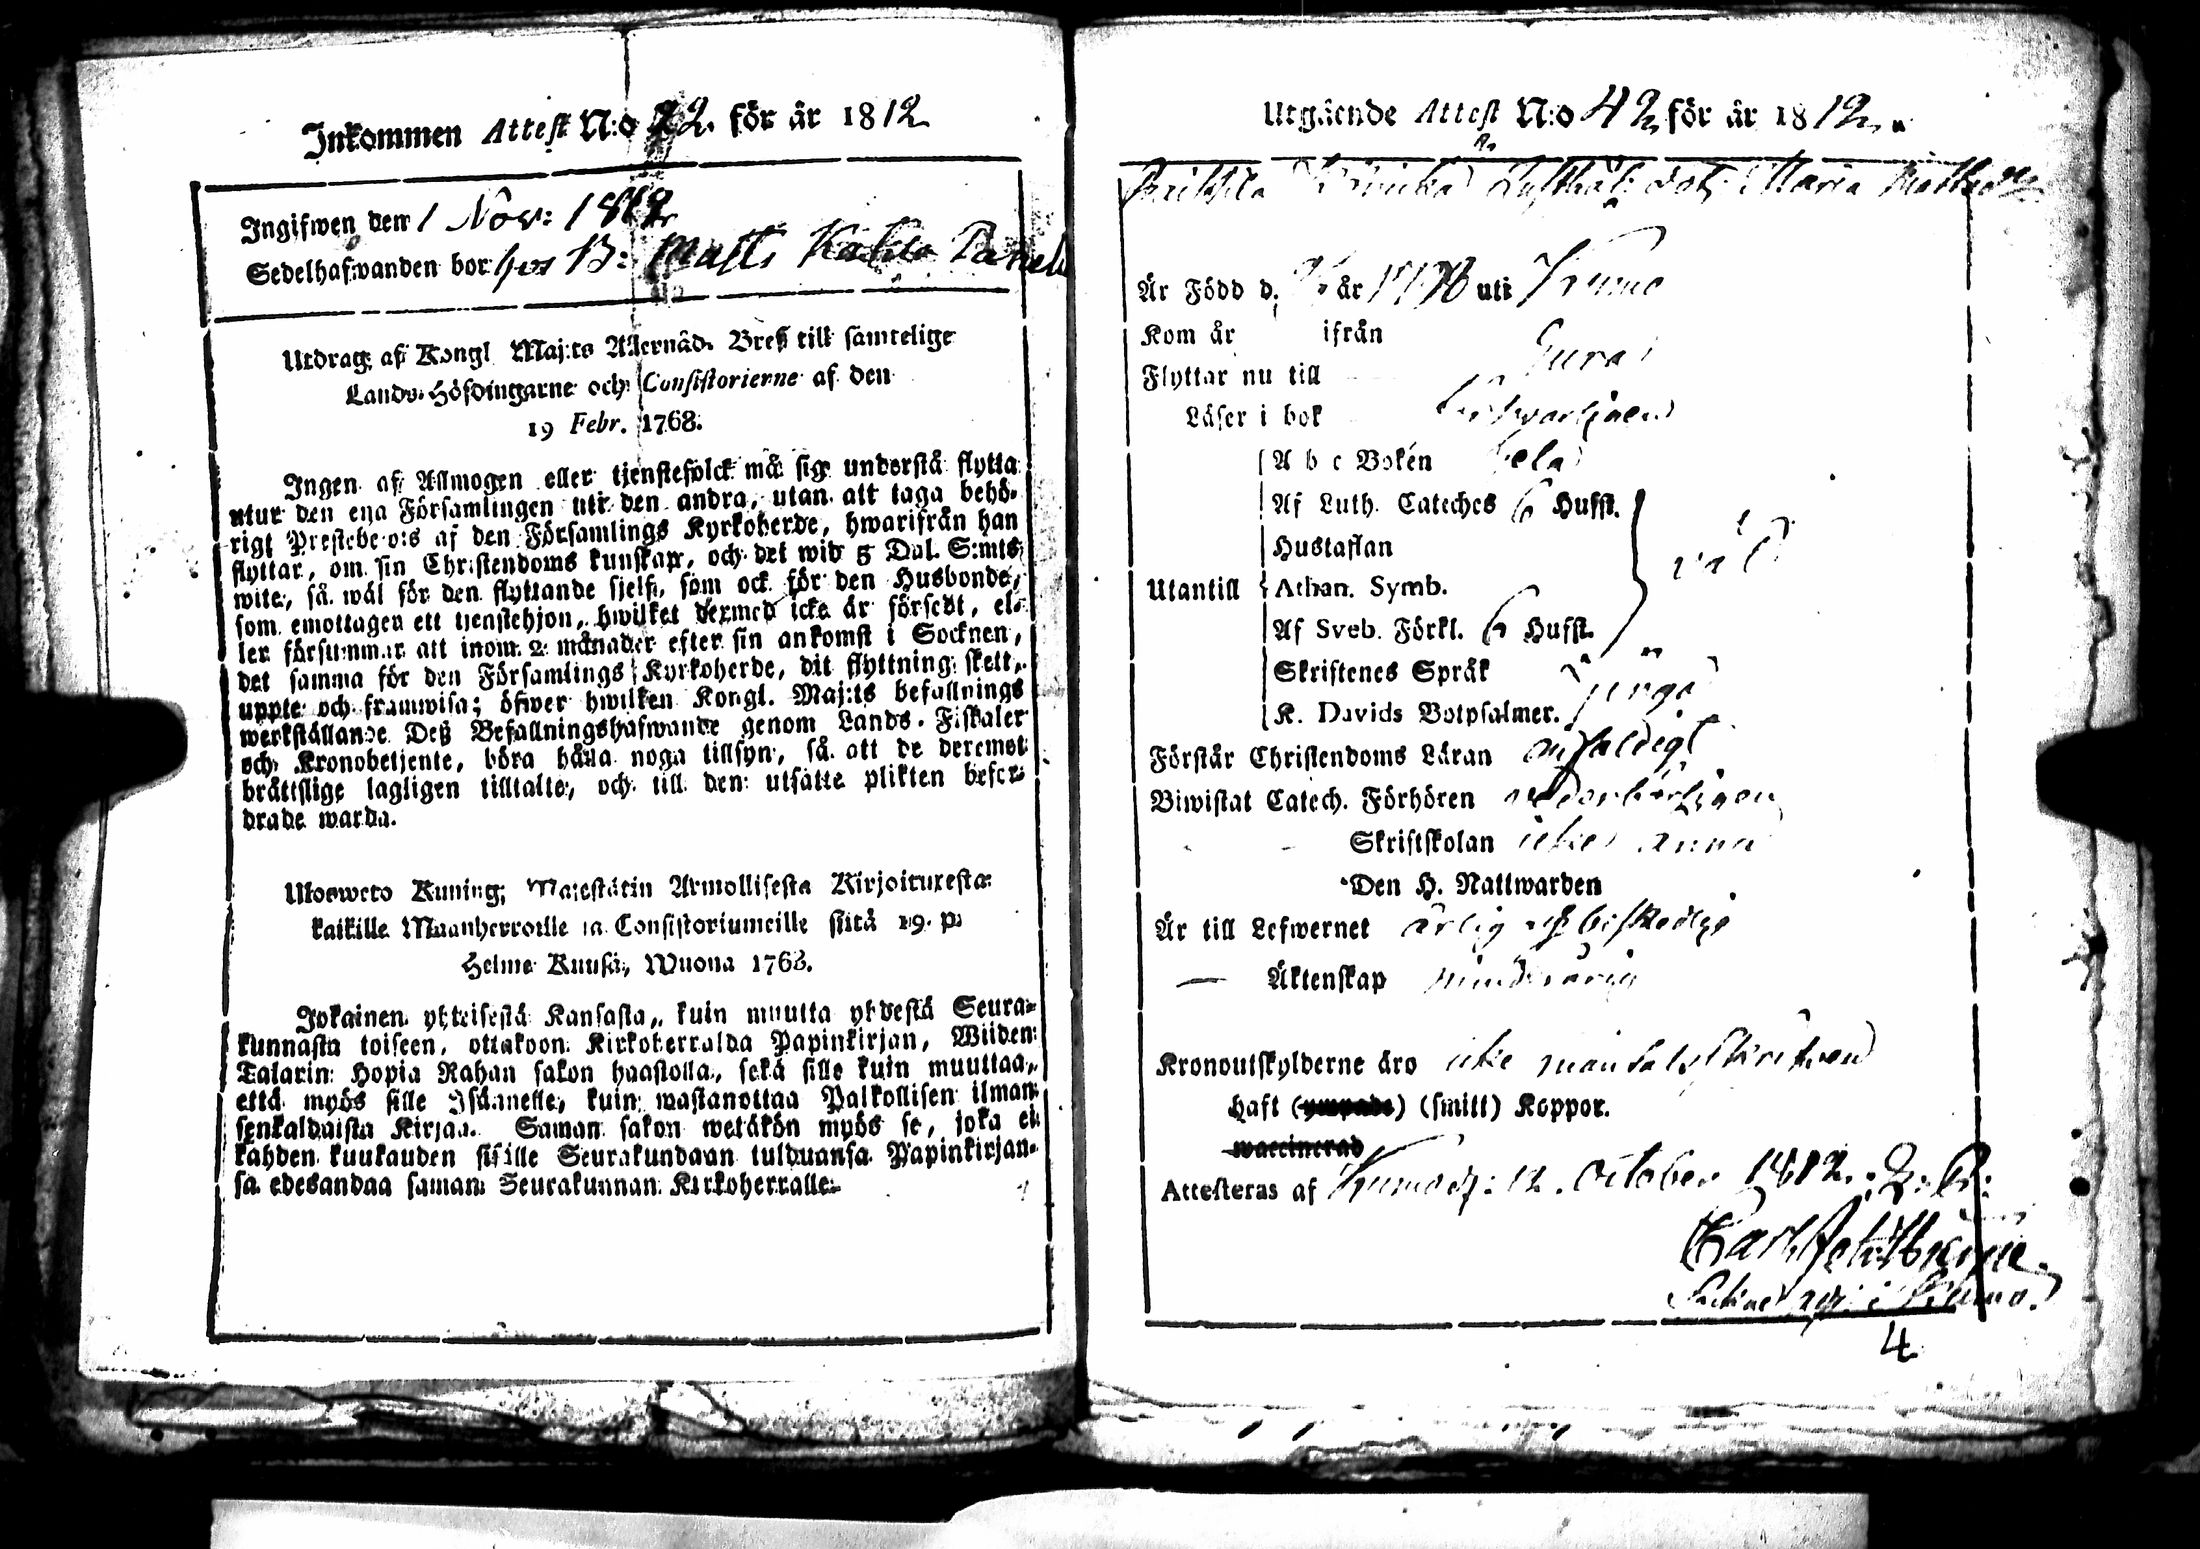 Inkommen Attest N:o 22. för år 1812
Ingifwen den 1 Nov: 1812
Sedelhafwanden bor hos B: Matts
Utdrag af Kongl Maj:ts Allernåd. Bref till samtelige
Lands-Höfdingarne och Consistorierne af den
19 Febr. 1768.
Ingen af Allmogen eller tjenstefolck må sig understå flytta
utur den ena Församlingen uti den andra, utan att taga behö-
rigt Prestebevis af den Församlings Kyrkoherde, hwarifrån han
flyttar, om sin Christendoms kunskap, och det wid 5 Dal. S:mts
wite, så wäl för den flyttande sjelf, som ock för den Husbonde,
som emottagen ett tjenstehjon, hwilket dermed icke är försedt, el-
ler försummar att inom 2 månader efter sin ankomst i Socknen,
det samma för den Församlings Kyrkoherde, dit flyttning skett,
uppte och framwisa; öfwer hwilken Kongl. Maj:ts befallnings
werkställande Deß Befallningshafwande genom Lands-Fiskaler
och Kronobetjente, böra hålla noga tillsyn, så att de deremot
brättslige lagligen tilltalte, och till den utsatte plikten befor-
drade warda.
Ulosweto Kuning: Majestätin Armollisesta Kirjoituxesta
kaikille Maanherroille ja Consistoriumeille siitä 19. p:
Helme Kuusa, Wuona 1768.
Jokainen yhteisestä Kansasta, kuin muutta yhdestä Seura-
kunnasta toiseen, ottakoon Kirkoherralda Papinkirjan, Wiiden
Talarin Hopia Rahan sakon haastolla, sekä sille kuin muuttaa,
että myös sille Isännelle, kuin wastanottaa Palkollisen ilman
senkaldaista Kirjaa. Saman sakon wetäkön myös se, joka ei
kahden kuukauden sisälle Seurakundaan tulduansa Papinkirjan-
sa edesandaa saman Seurakunnan Kirkoherralle.
Utgående Attest N:o 42 för år 1812
Maria
Är Född d. år uti Kumo
Kom år ifrån
Flyttar nu till Eura
Läser i bok
Utantill
A b c Boken hela
Af Luth. Cateches 6 Hufst.
Hustaflan
Athan. Symb.
Af Sveb. Förkl. 6 Hufst.
Skriftenes Språk
K. Davids Botpsalmer.
wäl
inga
Förstår Christendoms Läran enfaldigt
Biwistat Catech. Förhören wederbörligen
Skriftskolan icke ännu
Den H. Nattwarden
Är till Lefwernet ärlig och beskedlig
Äktenskap minderårig
Kronoutskylderne äro icke mantalsskrifwen
haft (ympade) (smitt) Koppor.
waccinerad
Attesteras af Kumo d: 12. October 1812.
Carl
4